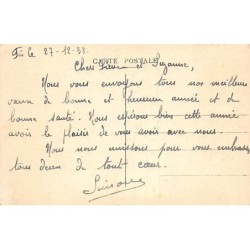 le 27-12-33.
CARTE POSTALE
Chers et Suzanne,
Nous vous envoyons tous nos meilleurs
vœux de bonne et heureuse année et de
bonne santé. Nous espérons bien cette année
avoir le plaisir de vous avoir avec nous.
Nous nous unissons pour vous embrasser
tous deux de tout cœur.